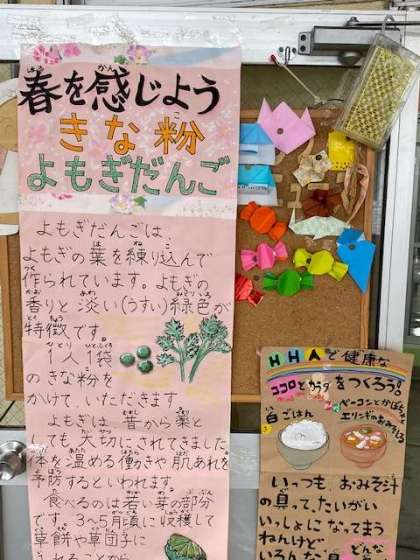 春を感じよう
きな粉
よもぎだんご
よもぎだんごは、
よもぎの葉を練り込んで
作られています。よもぎの
香りと淡い(うすい)緑色が
特徴です。
1人1袋
のきな粉を
かけていただきます
よもぎは、昔から薬と
ても大切にされてきました
体を温める働きや肌あれを
予防するといわれます
食べるのは若い芽の部分
です。3~5月頃に収穫して
草餅や草団子に
HHAで健康な
ココロとカラダをつくろう。
白ごはん
ベーコンとかぼちゃ
エリンギのおみそ汁
いっつも、おみそ汁
の具って、たいがい
いっしょになってまう
ねんけど